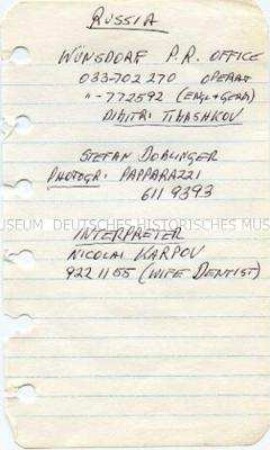 RUSSIA
WUNSDORF P.R. OFFICE
033-702 270 OPERAT
"-772592 (ENGL+GERM)
DIMITRI TIMASHKOV
STEFAN DOBLINGER
PHOTOGR: PAPPARAZZI
611 9393
USEUM DEUTSCHES HISTORISCHES MUS
INTERPRETER
NICOLAI KARPOV
922 11 55 (WIFE DENTIST)